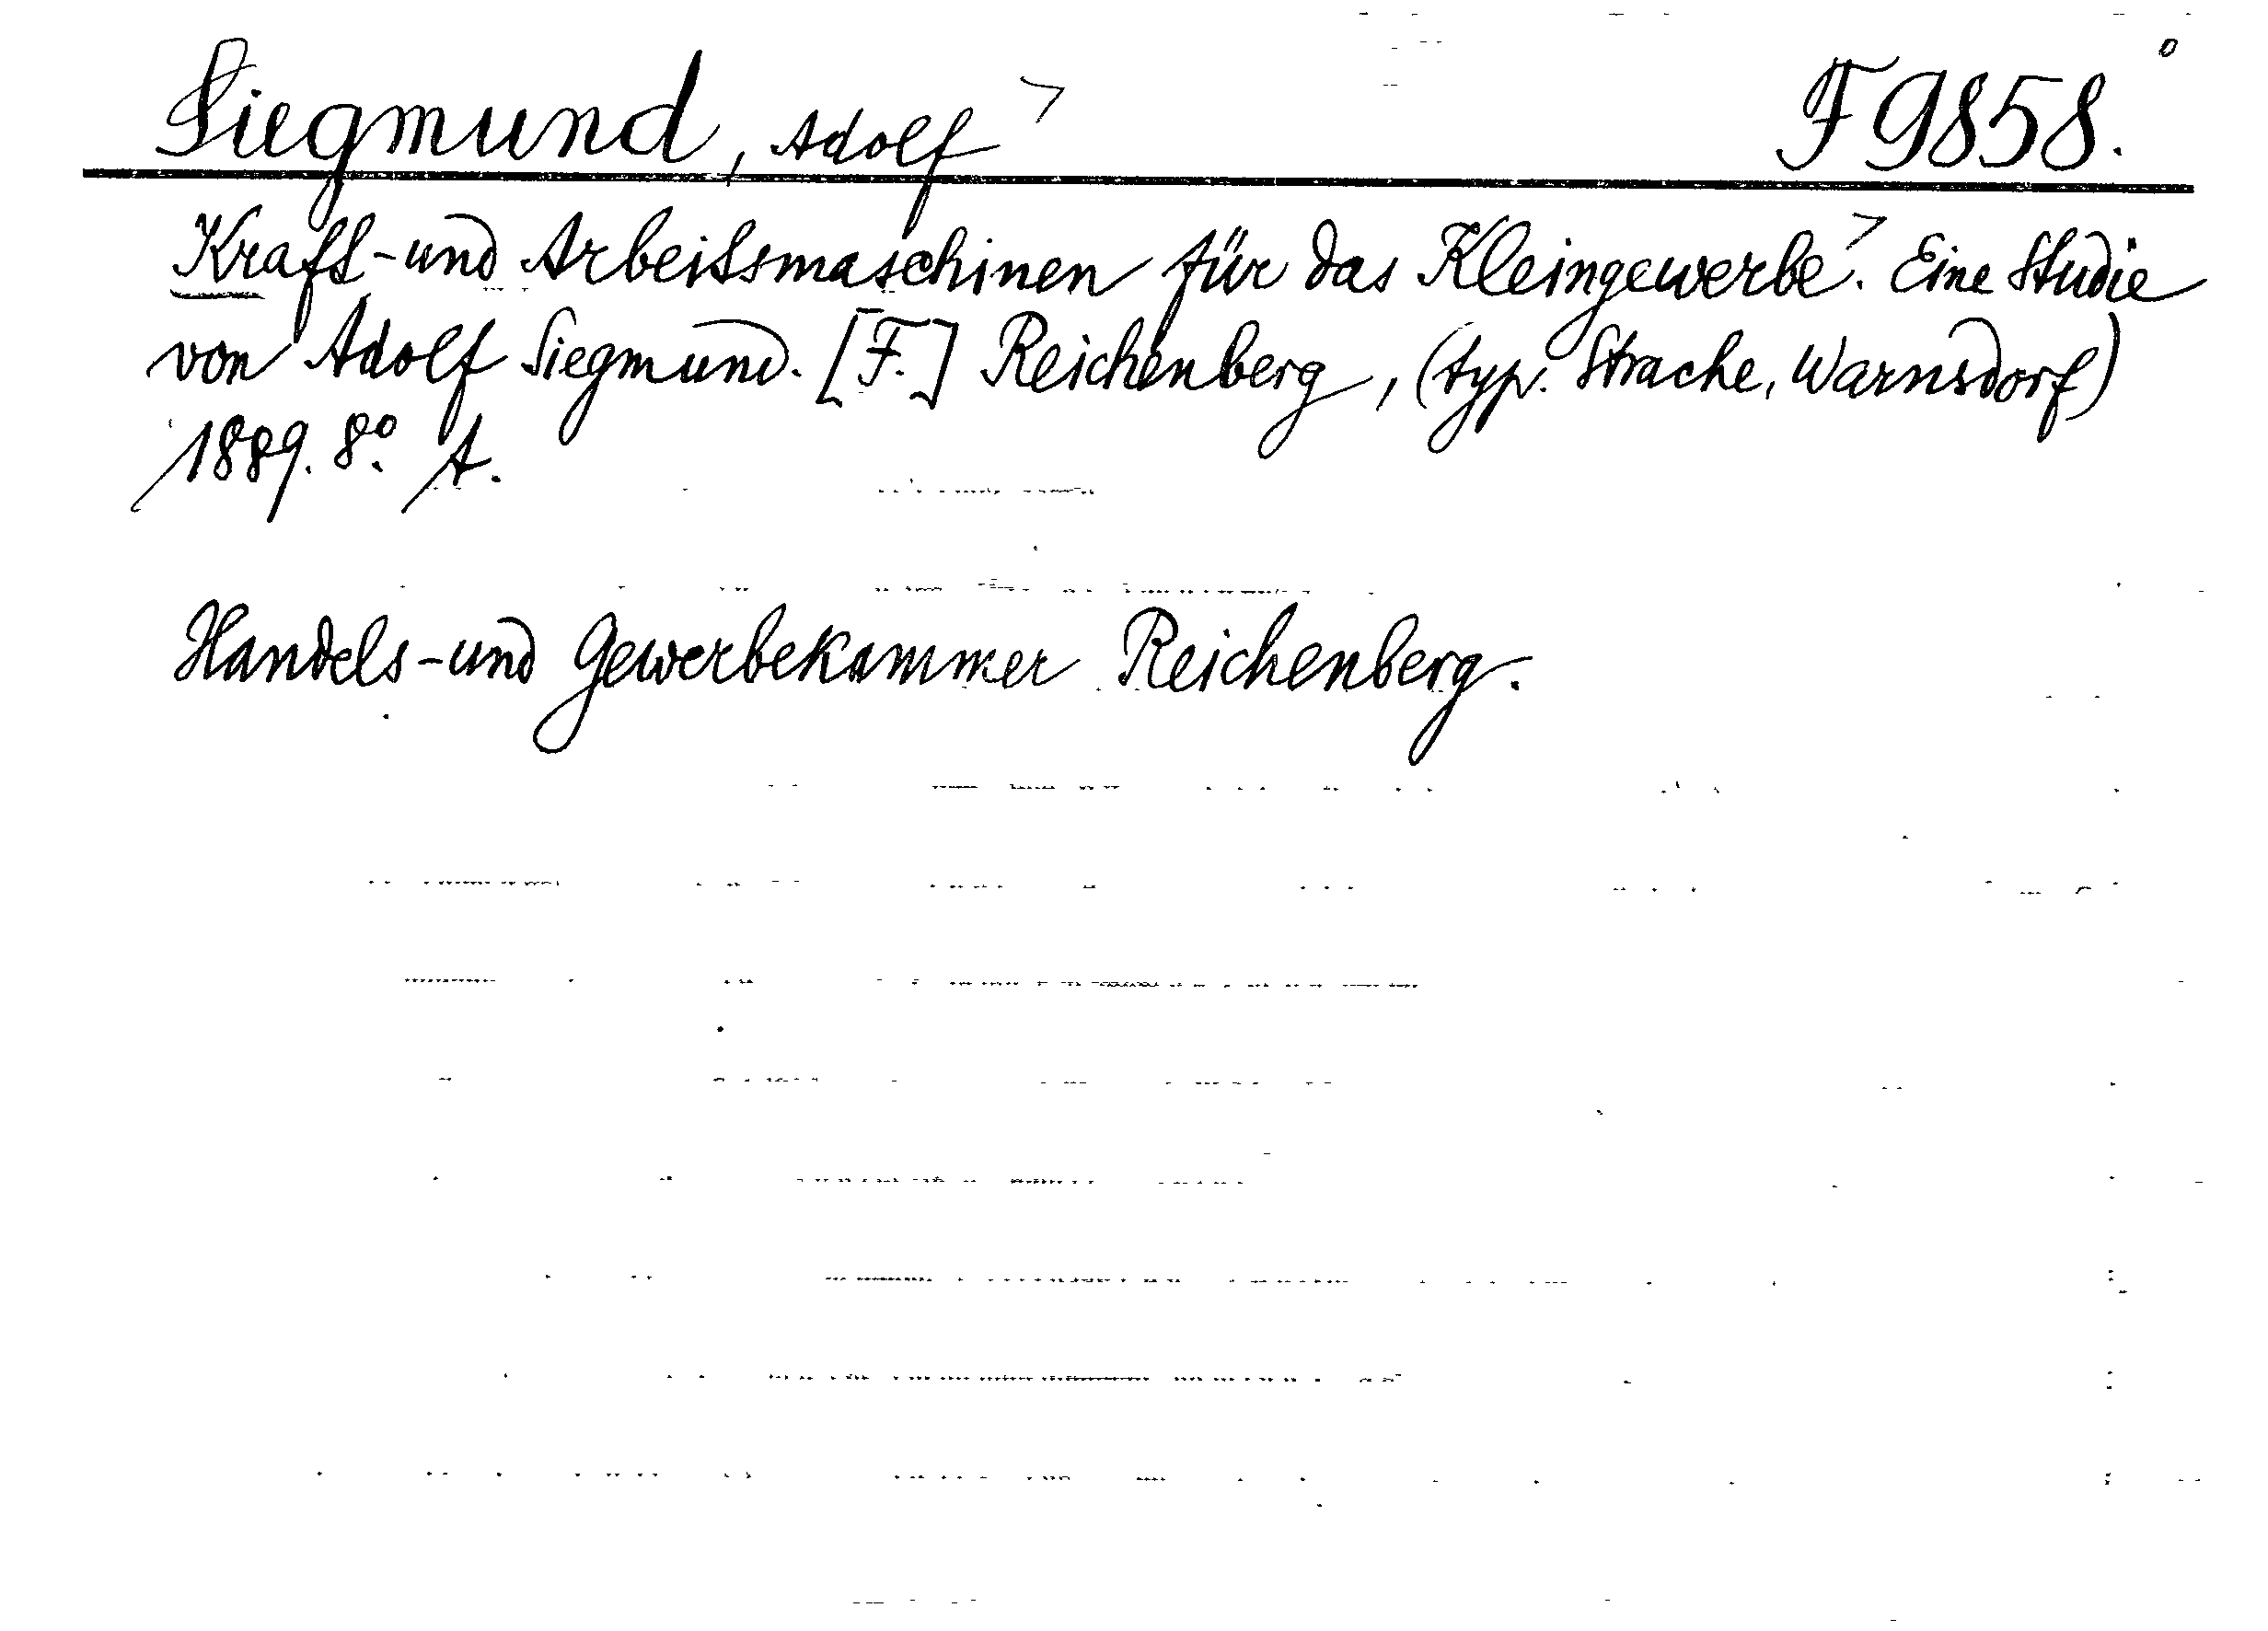 Siegmund, Adolf F 9858.
Kraft-und Arbeitsmaschinen für das Kleingewerbe. Eine Studie
von Adolf Siegmund. [F.] Reichenberg, (typ. Strache, Warnsdorf)
1889. 8º. A.
Handels-und Gewerbekammer Reichenberg.